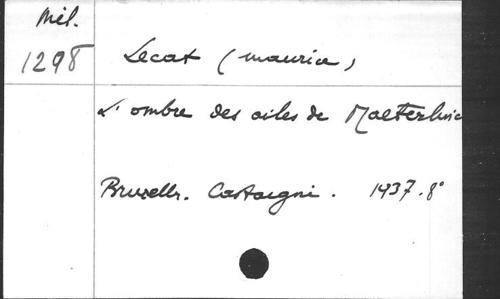 Mél.
1298
Lecat (Maurice)
L'ombre des ailes de Maeterlinc
Bruxelles. Castaigni. 1937. 8°